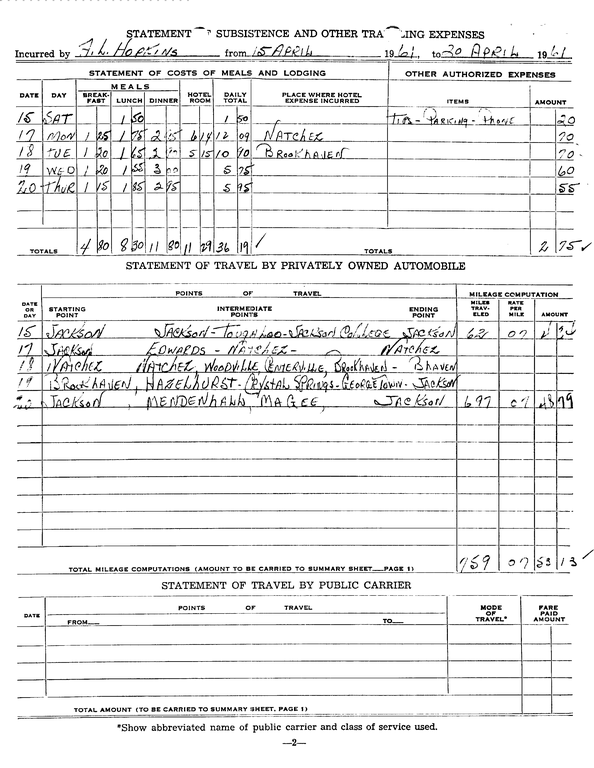 STATEMENT SUBSISTENCE AND OTHER TRA LING EXPENSES
Incurred by A. L. HOPKINS from 15 APRIL 1961, to 20 APRIL 1961
STATEMENT OF COSTS OF MEALS AND LODGING OTHER AUTHORIZED EXPENSES
DATE DAY MEALS BREAK-FAST LUNCH DINNER HOTEL ROOM DAILY TOTAL PLACE WHERE HOTEL EXPENSE INCURRED ITEMS AMOUNT
15 SAT 1 50 1 50 TIPS - PARKING - PHONE 20
17 MON 1 25 1 75 2 95 6 14 12 09 NATCHEZ 70
18 TUE 1 20 1 65 2 90 5 15 10 90 BROOKHAVEN 70
19 WED 1 20 1 55 3 00 5 75 60
20 THUR 1 15 1 85 2 95 5 95 55
TOTALS 4 80 8 30 11 80 11 29 36 19 ✓ TOTALS 2 75 ✓
STATEMENT OF TRAVEL BY PRIVATELY OWNED AUTOMOBILE
DATE OR DAY POINTS OF TRAVEL MILEAGE COMPUTATION
STARTING POINT INTERMEDIATE POINTS ENDING POINT MILES TRAV-ELED RATE PER MILE AMOUNT
15 JACKSON JACKSON - TOUGALOO - JACKSON COLLEGE JACKSON 62 07
17 JACKSON EDWARDS - NATCHEZ - NATCHEZ
18 NATCHEZ NATCHEZ, WOODVILLE, CENTERVILLE, BROOKHAVEN - BHAVEN
19 BROOKHAVEN, HAZELHURST - CRYSTAL SPRINGS - GEORGETOWN - JACKSON
JACKSON, MENDENHALL, MAGEE, JACKSON 697 07 48 79
TOTAL MILEAGE COMPUTATIONS (AMOUNT TO BE CARRIED TO SUMMARY SHEET PAGE 1) 759 07 53 13 ✓
STATEMENT OF TRAVEL BY PUBLIC CARRIER
DATE POINTS OF TRAVEL MODE OF TRAVEL* FARE PAID AMOUNT
FROM TO
TOTAL AMOUNT (TO BE CARRIED TO SUMMARY SHEET, PAGE 1)
*Show abbreviated name of public carrier and class of service used.
—2—